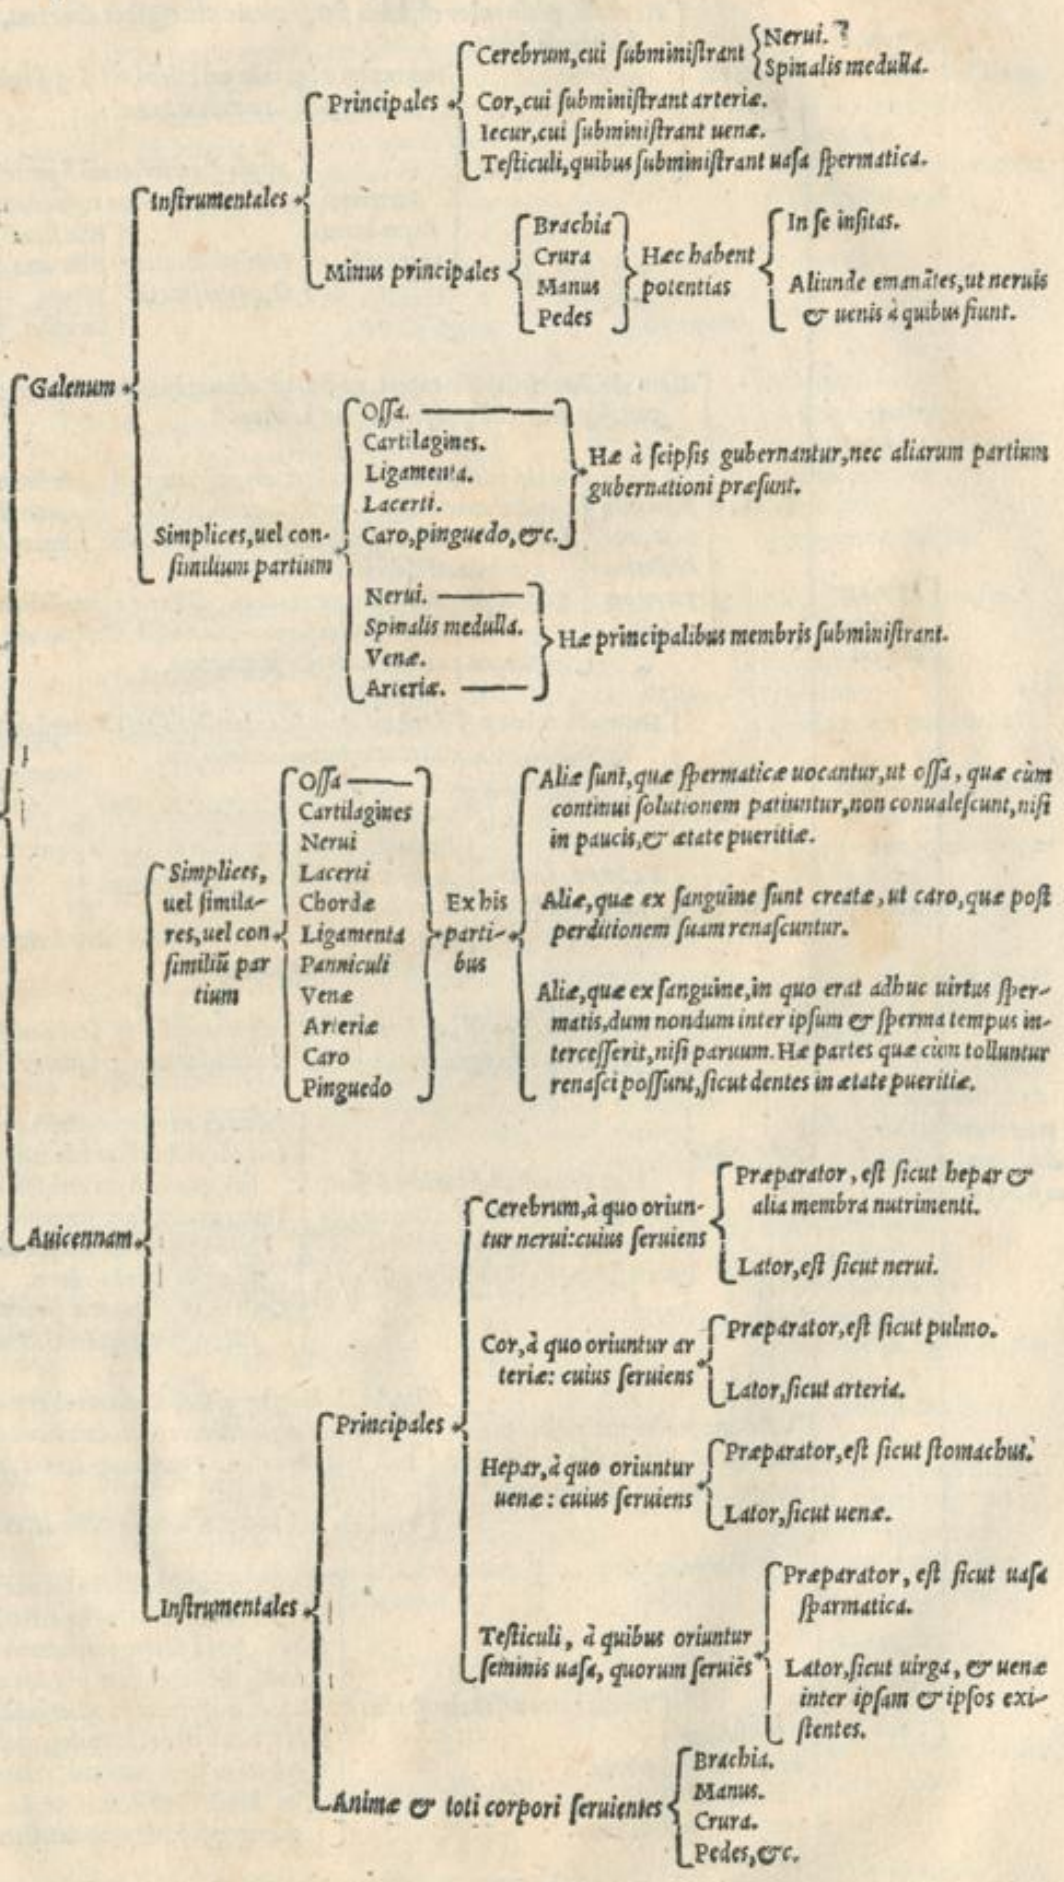 Galenum
Inſtrumentales
Principales
Cerebrum, cui ſubminiſtrant
Nerui.
Spinalis medulla.
Cor, cui ſubminiſtrant arteriæ.
Iecur, cui ſubminiſtrant uenæ.
Teſticuli, quibus ſubminiſtrant uaſa ſpermatica.
Minus principales
Brachia
Crura
Manus
Pedes
Hæc habent
potentias
In ſe inſitas.
Aliunde emanātes, ut neruis
& uenis à quibus fiunt.
Simplices, uel con-
ſimilium partium
Oſſa.
Cartilagines.
Ligamenta.
Lacerti.
Caro, pinguedo, &c.
Hæ à ſeipſis gubernantur, nec aliarum partium
gubernationi præſunt.
Nerui.
Spinalis medulla.
Venæ.
Arteriæ.
Hæ principalibus membris ſubminiſtrant.
Auicennam
Simplices,
uel ſimila-
res, uel con
ſimiliū par
tium
Oſſa
Cartilagines
Nerui
Lacerti
Chordæ
Ligamenta
Panniculi
Venæ
Arteriæ
Caro
Pinguedo
Ex his
parti-
bus
Aliæ ſunt, quæ ſpermaticæ uocantur, ut oſſa, quæ cùm
continui ſolutionem patiuntur, non conualeſcunt, niſi
in paucis, & ætate pueritiæ.
Aliæ, quæ ex ſanguine ſunt creatæ, ut caro, quæ poſt
perditionem ſuam renaſcuntur.
Aliæ, quæ ex ſanguine, in quo erat adhuc uirtus ſper-
matis, dum nondum inter ipſum & ſperma tempus in-
terceſſerit, niſi paruum. Hæ partes quæ cùm tolluntur
renaſci poſſunt, ſicut dentes in ætate pueritiæ.
Inſtrumentales
Principales
Cerebrum, à quo oriun-
tur nerui: cuius ſeruiens
Præparator, eſt ſicut hepar &
alia membra nutrimenti.
Lator, eſt ſicut nerui.
Cor, à quo oriuntur ar
teriæ: cuius ſeruiens
Præparator, eſt ſicut pulmo.
Lator, ſicut arteria.
Hepar, à quo oriuntur
uenæ: cuius ſeruiens
Præparator, eſt ſicut ſtomachus.
Lator, ſicut uenæ.
Teſticuli, à quibus oriuntur
ſeminis uaſa, quorum ſeruiēs
Præparator, eſt ſicut uaſa
ſparmatica.
Lator, ſicut uirga, & uenæ
inter ipſam & ipſos exi-
ſtentes.
Animæ & toti corpori ſeruientes
Brachia.
Manus.
Crura.
Pedes, &c.